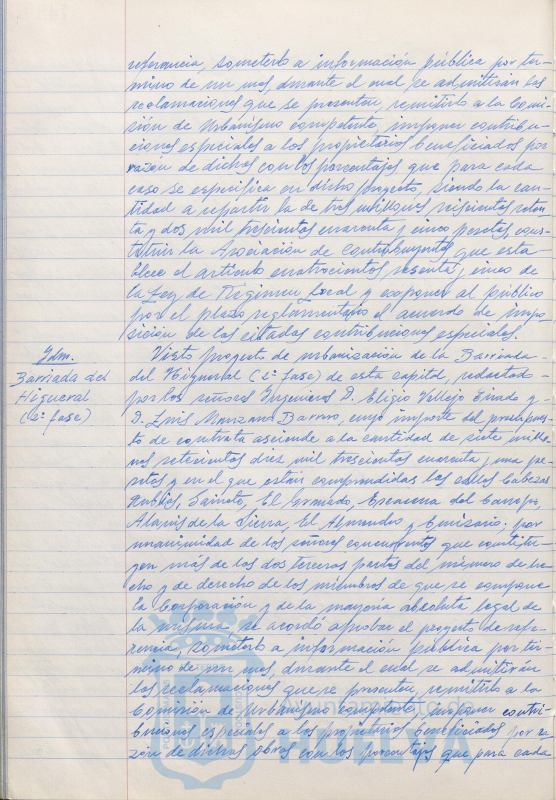 referencia, someterlo a información pública por tér-
mino de un mes, durante el cual se admitirán las
reclamaciones que se presenten, remitirlo a la Comi-
sión de Urbanismo competente, imponer contribu-
ciones especiales a los propietarios beneficiados por
razón de dichas con los porcentajes que para cada
caso se especifica en dicho proyecto, siendo la can-
tidad a repartir la de tres millones seiscientas seten-
ta y dos mil trescientas cuarenta y cinco pesetas cons-
tituir la Asociación de Contribuyentes que esta
blece el artículo cuatrocientos sesenta y cinco de
la Ley de Régimen Local y exponer al público
por el plazo reglamentario el acuerdo de impo
sición de las citadas contribuciones especiales.
Idm.
Barriada del
Higueral
(2ª fase)
Visto proyecto de urbanización de la Barriada
del Higueral (2ª fase) de esta capital, redactado
por los señores Ingenieros D. Eligio Vallejo y
D. Luis Manzano Barrero, cuyo importe del presupues-
to de contrata asciende a la cantidad de siete millo
nes setecientas diez mil trescientas cuarenta y una pe-
setas y en el que están comprendidas las calles Cabezas
Rubias, El Granado, Escacena del Campo,
Alanis de la Sierra, El Almendro y Emisario; por
unanimidad de los señores concurrentes que constitu-
yen más de las dos terceras partes del número de he
cho y de derecho de los miembros de que se compone
la Corporación y de la mayoría absoluta legal de
la misma se acordó aprobar el proyecto de refe-
rencia, someterlo a información pública por tér-
mino de un mes, durante el cual se admitirán
las reclamaciones que se presenten, remitirlo a la
Comisión de Urbanismo competente, imponer contri-
buciones especiales a los propietarios beneficiados por ra
zón de dichas obras con los porcentajes que para cada